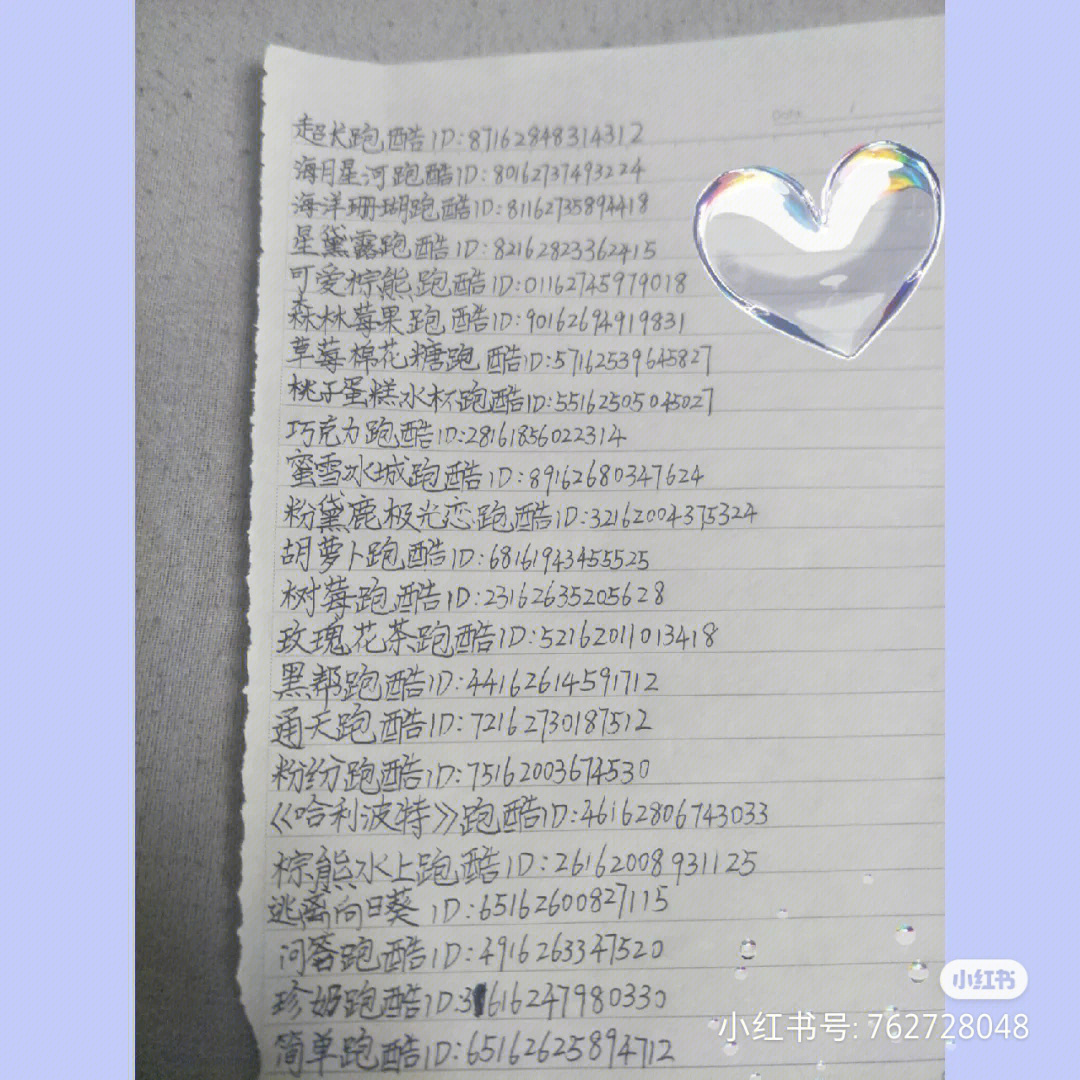 超长跑酷ID:87162848314312
海月星河跑酷ID:80162737493224
海洋珊瑚跑酷ID:81162735894418
星黛露跑酷ID:82162823362415
可爱棕熊跑酷ID:01162745979018
森林莓果跑酷ID:90162694919831
草莓棉花糖跑酷ID:57162539645827
桃子蛋糕水杯跑酷ID:55162505045027
巧克力跑酷ID:28161856022314
蜜雪冰城跑酷ID:89162680347624
粉黛鹿极光恋跑酷ID:32162004375324
胡萝卜跑酷ID:68161943455525
树莓跑酷ID:23162635205628
玫瑰花茶跑酷ID:52162011013418
黑帮跑酷ID:44162614591712
通天跑酷ID:72162730187512
粉纷跑酷ID:75162003674530
《哈利波特》跑酷ID:46162806743033
棕熊水上跑酷ID:26162008931125
逃离向日葵 ID:65162600827115
问答跑酷ID:4916263347520
珍奶跑酷ID:31616247980330
简单跑酷ID:65162625894712
Date
小红书
小红书号: 762728048